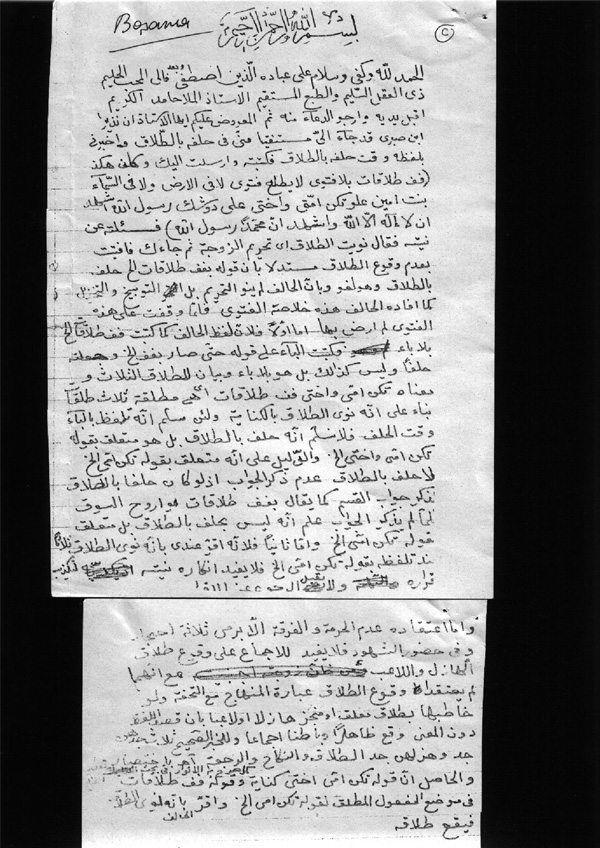 Bosama
بسم الله الرحمن الرحيم
الحمد لله وكفى وسلام على عباده الذين اصطفى وبعد فالى المحب الحليم
ذى العقل السليم والطبع المستقيم الاستاذ الملا حامد الكريم
اقبل يديه وارجو الدعاء منه ثم المعروض عليكم ايها الاستاذ ان
ابن صبرى قد جاء الىّ مستفتيا منى فى حلفه بالطلاق واخبرنى
بلفظه وقت حلفه بالطلاق فكتبته وارسلت اليك وحلفه هكذا
(فف طلاقات بلا فتوى لا يطلع فتوى لا فى الارض ولا فى السماء
بنت امين علو تكن امى واختى على دوشك رسول الله اشهد
ان لا اله الا الله واشهد ان محمدا رسول الله) فسئلته عن
نيته فقال نويت الطلاق اى تحريم الزوجة ثم جاءك فافتيت
بعدم وقوع الطلاق مستدلا بان قوله بفف طلاقات الخ حلف
بالطلاق وهو لغو وبان الحالف لم ينو التحريم بل التوبيخ والتخجيل
كما افاده الحالف هذه خلاصة الفتوى فانا وقفت على هذه
الفتوى لم ارض بها اما اولا فلان لفظ الحالف كما كتبت فف طلاقات الخ
بلا باء وكتبت الباء على قوله حتى صار بفف الخ وجعلته
حلفا وليس كذلك بل هو بلا باء وبيان للطلاق الثلاث و
معناه تكن امى واختى فف طلاقات اى هى مطلقة ثلاث طلقات
بناء على انه نوى الطلاق بالكناية ولئن سلم انه تلفظ بالباء
وقت الحلف فلا نسلم انه حلف بالطلاق بل هو متعلق بقوله
تكن امى واختى الخ والدليل على انه متعلق بقوله تكن امى الخ
لا حلف بالطلاق عدم ذكر الجواب اذ لو كان حلفا بالطلاق
لذكر جواب القسم كما يقال بفف طلاقات ما اروح السوق
لما لم يذكر الجواب علم انه ليس بحلف بالطلاق بل متعلق
قوله تكن امى الخ واما ثانيا فلانه اقر عندى بانه نوى الطلاق ثلاثا
عند تلفظه بقوله تكن امى الخ فلا يفيد انكاره نيته
قراره ولا يقبل الرجوع عن الاقرار
واما اعتقاده عدم الحرمة والفرقة الا برمى ثلاثة احجار
وفى حضور الشهود فلا يفيد للاجماع على وقوع طلاق
الهازل واللاعب مع انهما
لم يعتقدا وقوع الطلاق عبارة المنهاج مع التحفة ولو
خاطبها بطلاق معلق او منجز هازلا او لاعبا بان قصد اللفظ
دون المعنى وقع ظاهرا وباطنا اجماعا وللخبر الصحيح ثلاث جدهن
جد وهزلهن جد الطلاق والنكاح والرجعة
والحاصل ان قوله تكن امى اختى كناية وقوله فف طلاقات
فى موضع المفعول المطلق لقوله تكن امى الخ واقر بانه نوى الطلاق
فيقع طلاقه